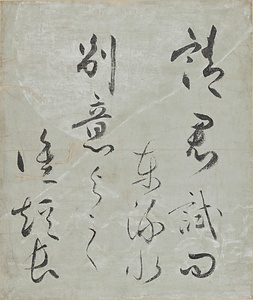 請君試問
東流水
別意与之
誰短長